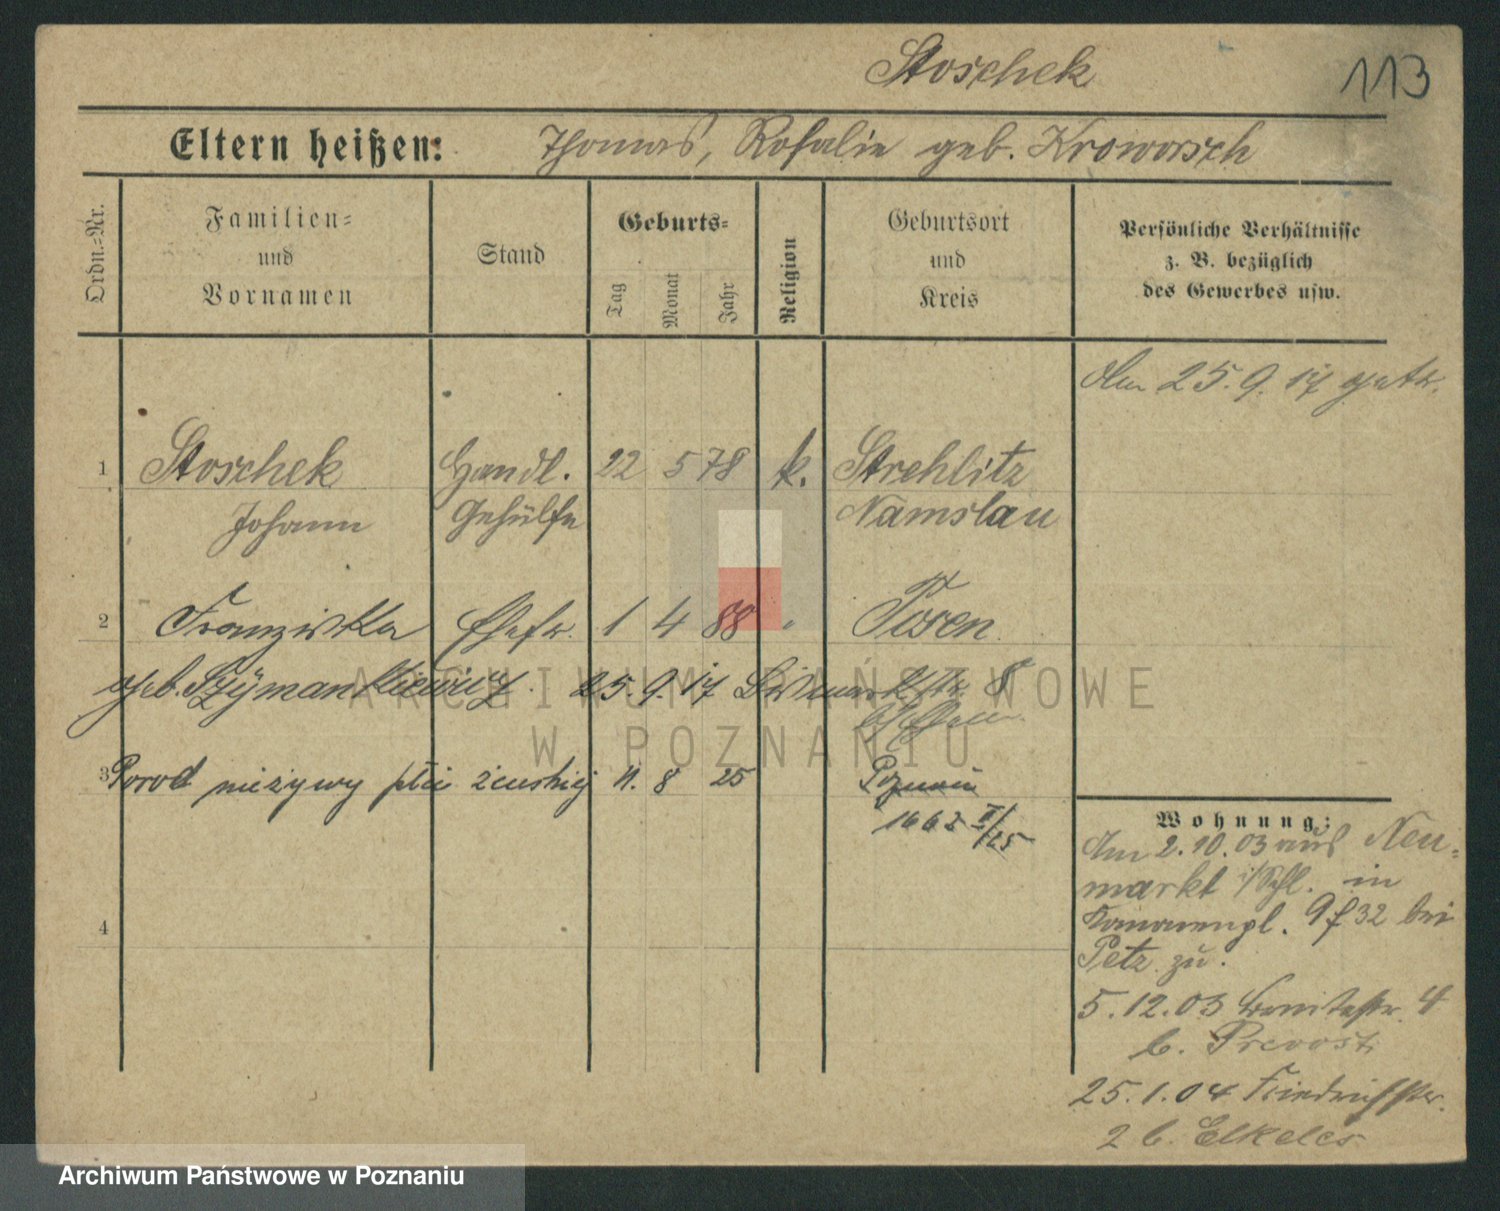 Stoschek
113
Eltern heißen: Thomas, Rosalie geb. Kroworsch
Ordn.=Nr.
Familien=
und
Vornamen
Stand
Geburts=
Tag
Monat
Jahr
Religion
Geburtsort
und
Kreis
Persönliche Verhältnisse
z. B. bezüglich
des Gewerbes usw.
Am 25.9.17 getr.
1 Stoschek Handl. 22 5 78 k. Strehlitz
Johann Gehülfe Namslau
2 Franziska Ehefr. 1 4 88 Posen
geb. Szymankiewicz 25.9.17 Bismarckstr. 8
3 Porod nieżywy płci żeńskiej 11. 8 25 Poznań
1662 II/25
4
Wohnung:
Am 2.10.03 aus Neu=
markt i/Schl. in
9 f 32 bei
Petz zu.
5.12.03 4
b. Prevost
25.1.04 Friedrichstr.
2 b. Elkeles
ARCHIWUM PAŃSTWOWE
W POZNANIU
Archiwum Państwowe w Poznaniu